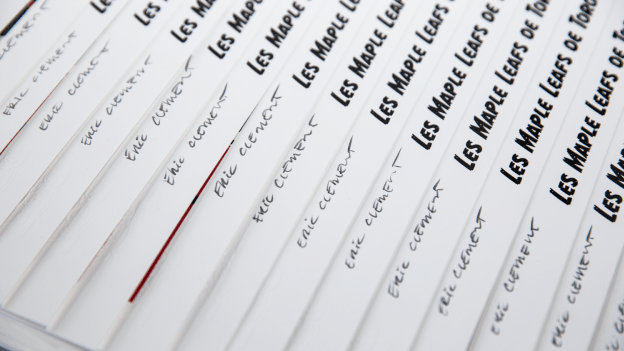 Eric Clement Les
Eric Clement Les
Eric Clement Les
Eric Clement Les Maple
Eric Clement Les Maple
Eric Clement Les Maple Leafs
Eric Clement Les Maple Leafs
Eric Clement Les Maple Leafs de
Eric Clement Les Maple Leafs de
Eric Clement Les Maple Leafs de Toro
Eric Clement Les Maple Leafs de Toro
Eric Clement Les Maple Leafs de
Eric Clement Les Maple Leafs
Eric Les Maple